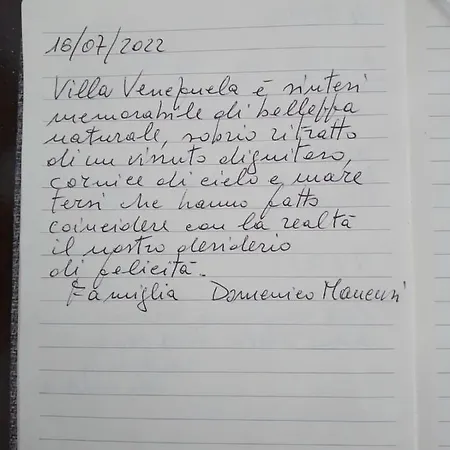 18/07/2022
Villa Venezuela è sintesi
memorabile di bellezza
naturale, sobrio ritratto
di un vissuto dignitoso,
cornice di cielo e mare
tersi che hanno fatto
coincidere con la realtà
il nostro desiderio
di felicità.
Famiglia Domenico Mancusi